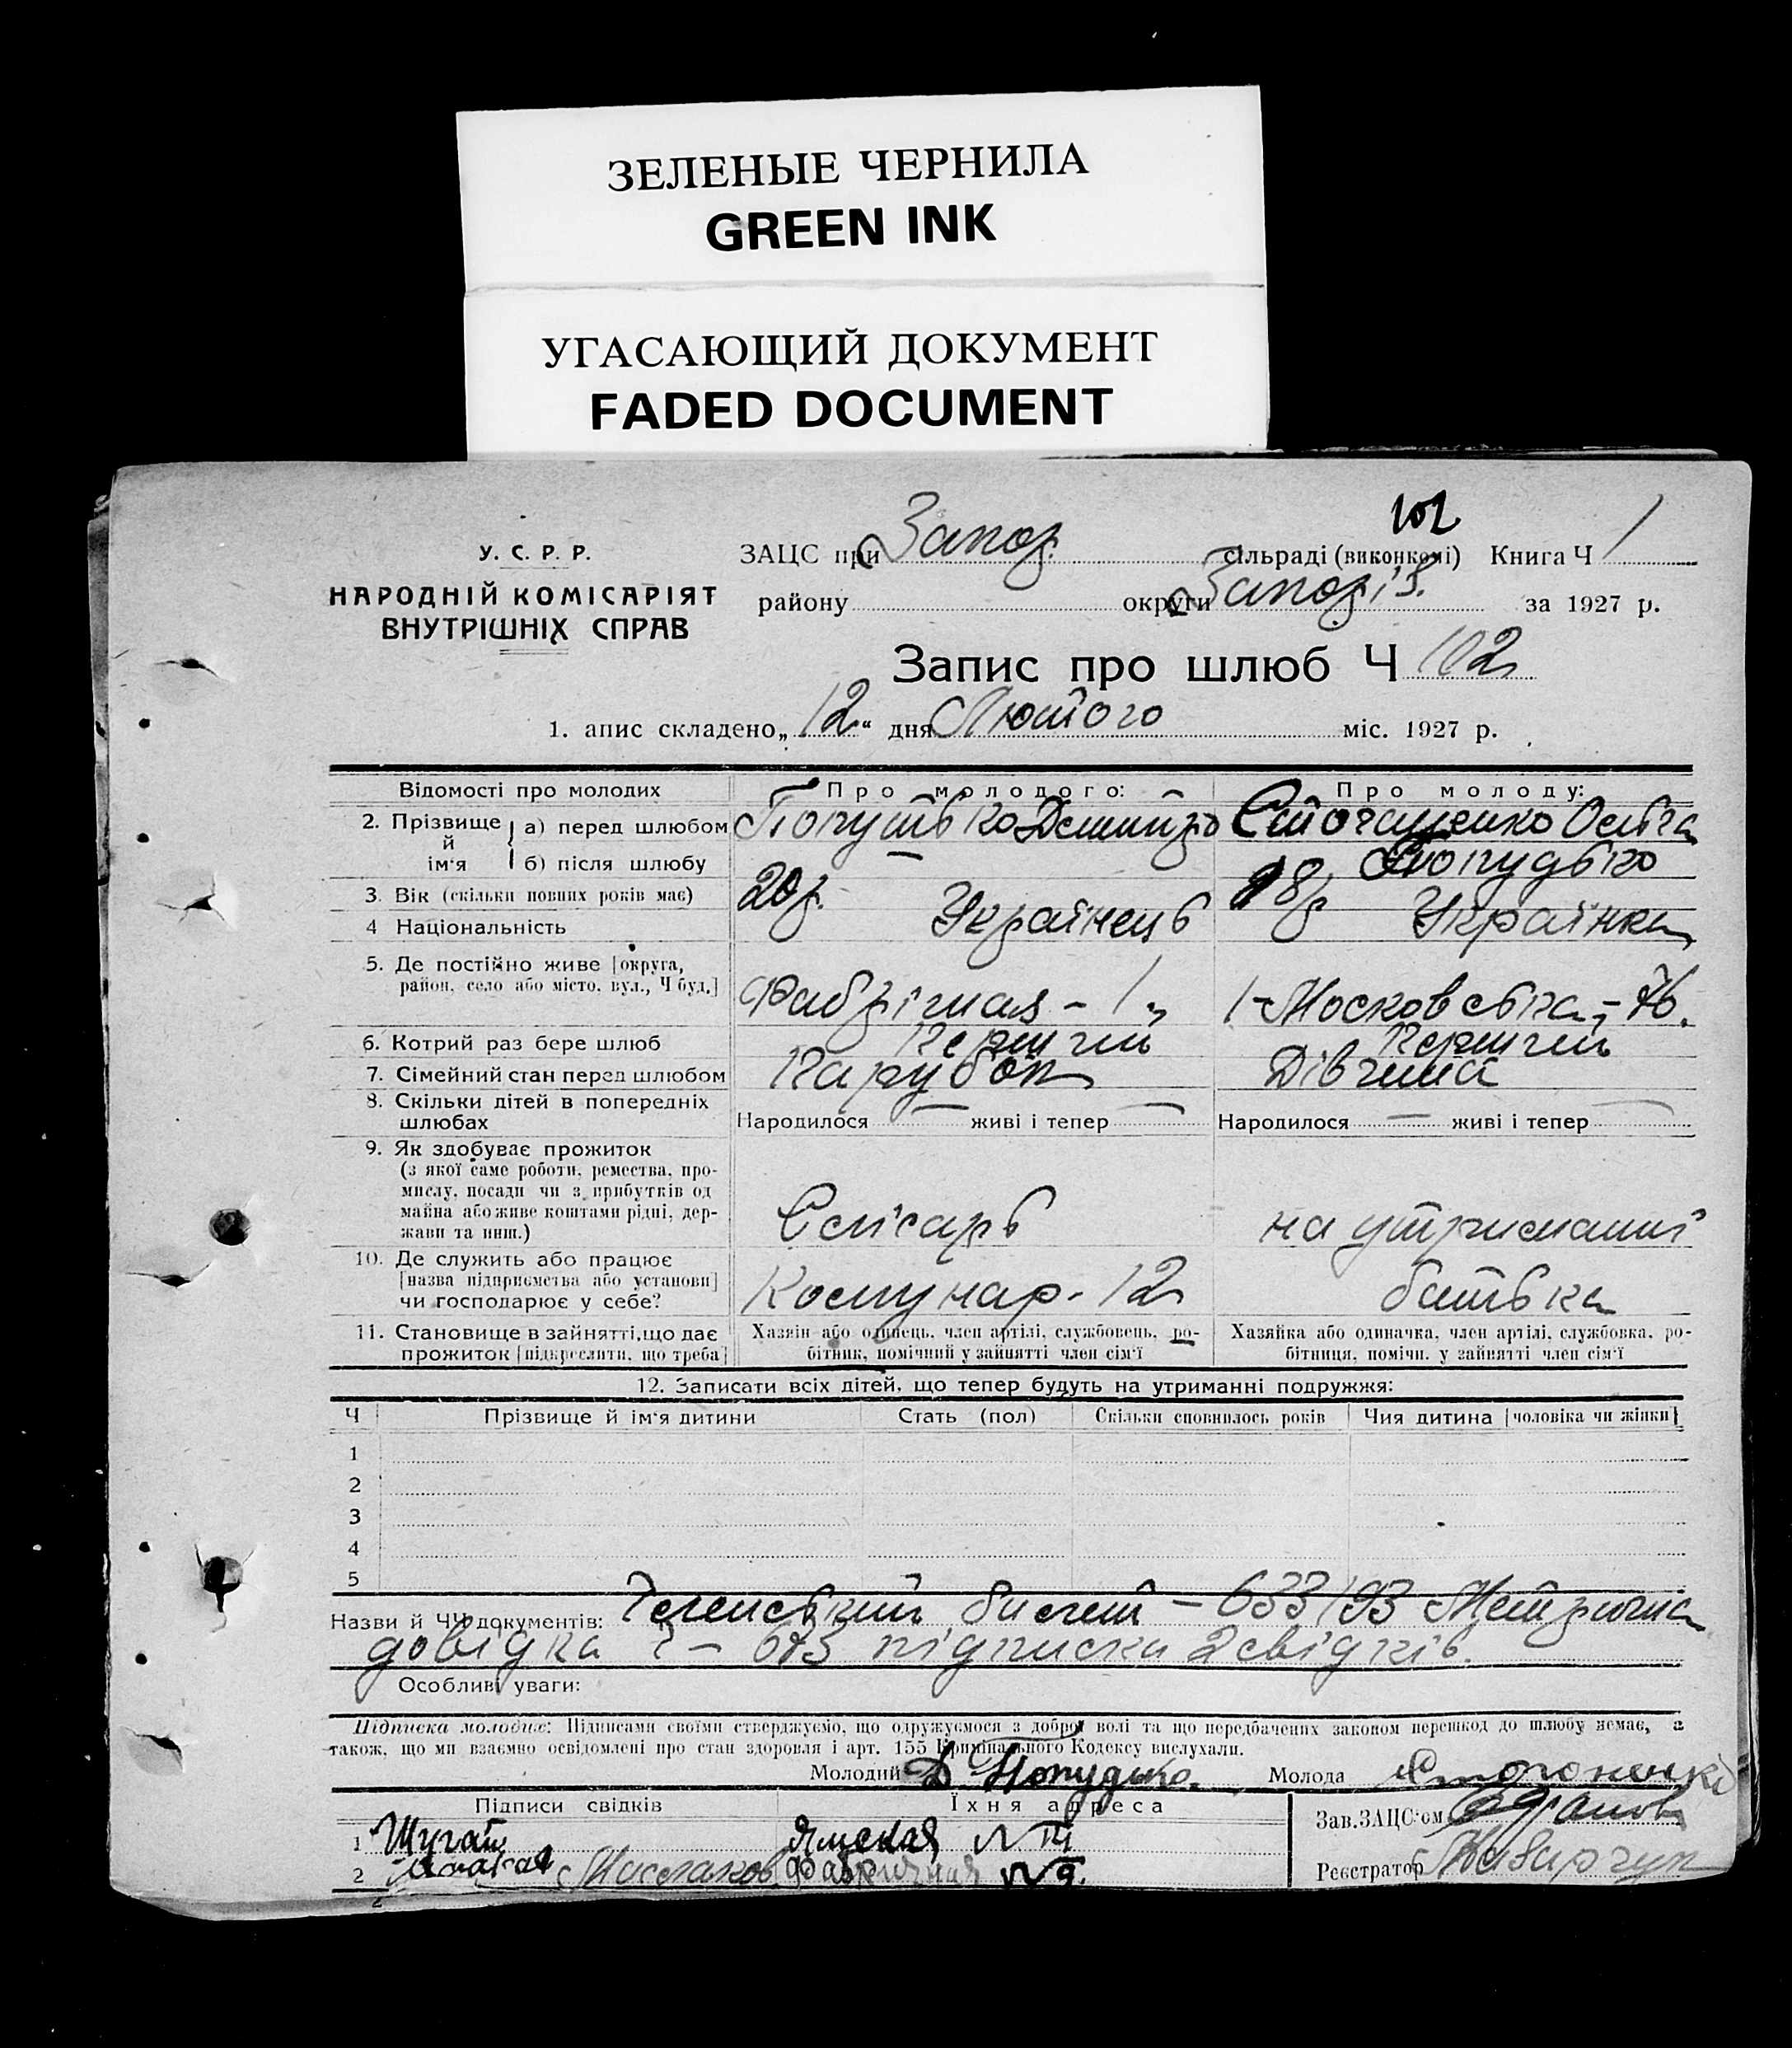 ЗЕЛЕНЫЕ ЧЕРНИЛА
GREEN INK
УГАСАЮЩИЙ ДОКУМЕНТ
FADED DOCUMENT
102
У. С. Р. Р.
НАРОДНІЙ КОМІСАРІЯТ
ВНУТРІШНІХ СПРАВ
ЗАЦС при Запор. сільраді (виконкомі) Книга Ч 1
району округи Запоріз. за 1927 р.
Запис про шлюб Ч 102
1. апис складено „12“ дня Лютого міс. 1927 р.
Відомості про молодих Про молодого: Про молоду:
2. Прізвище й ім'я а) перед шлюбом
б) після шлюбу —
3. Вік (скільки повних років має) 20 р. 18 р.
4 Національність Українець Українка
5. Де постійно живе [округа, район, село або місто, вул., Ч буд.] 1 Московська, – 76.
6. Котрий раз бере шлюб
7. Сімейний стан перед шлюбом Парубок Дівчина
8. Скільки дітей в попередніх шлюбах Народилося — живі і тепер — Народилося — живі і тепер —
9. Як здобуває прожиток
(з якої саме роботи, ремества, про-
мислу, посади чи з прибутків од
майна або живе коштами рідні, дер-
жави та инш.) Слісарь на утриманні
10. Де служить або працює
[назва підприємства або установи]
чи господарює у себе? Комунар - 12 батька
11. Становище в зайнятті, що дає
прожиток [підкреслити, що треба]
Хазяїн або одинець, член артілі, службовець, ро-
бітник, помічний у зайнятті член сім'ї
Хазяйка або одиначка, член артілі, службовка, ро-
бітниця, помічн. у зайнятті член сім'ї
12. Записати всіх дітей, що тепер будуть на утриманні подружжя:
Ч Прізвище й ім'я дитини Стать (пол) Скільки сповнилось років Чия дитина [чоловіка чи жінки]
1
2
3
4
5
Назви й ЧЧ документів: білет – 633/93 Метрична
довідка – 673 підписка 2 свідків.
Особливі уваги:
Підписка молодих: Підписами своїми стверджуємо, що одружуємося з доброї волі та що передбачених законом перешкод до шлюбу немає, а
також, що ми взаємно освідомлені про стан здоровля і арт. 155 Кримінального Кодексу вислухали.
Молодий Д. Попудько. Молода
Підписи свідків Їхня адреса Зав. ЗАЦС'ом
1 Ямская
2 Фабричная № 9. Реєстратор